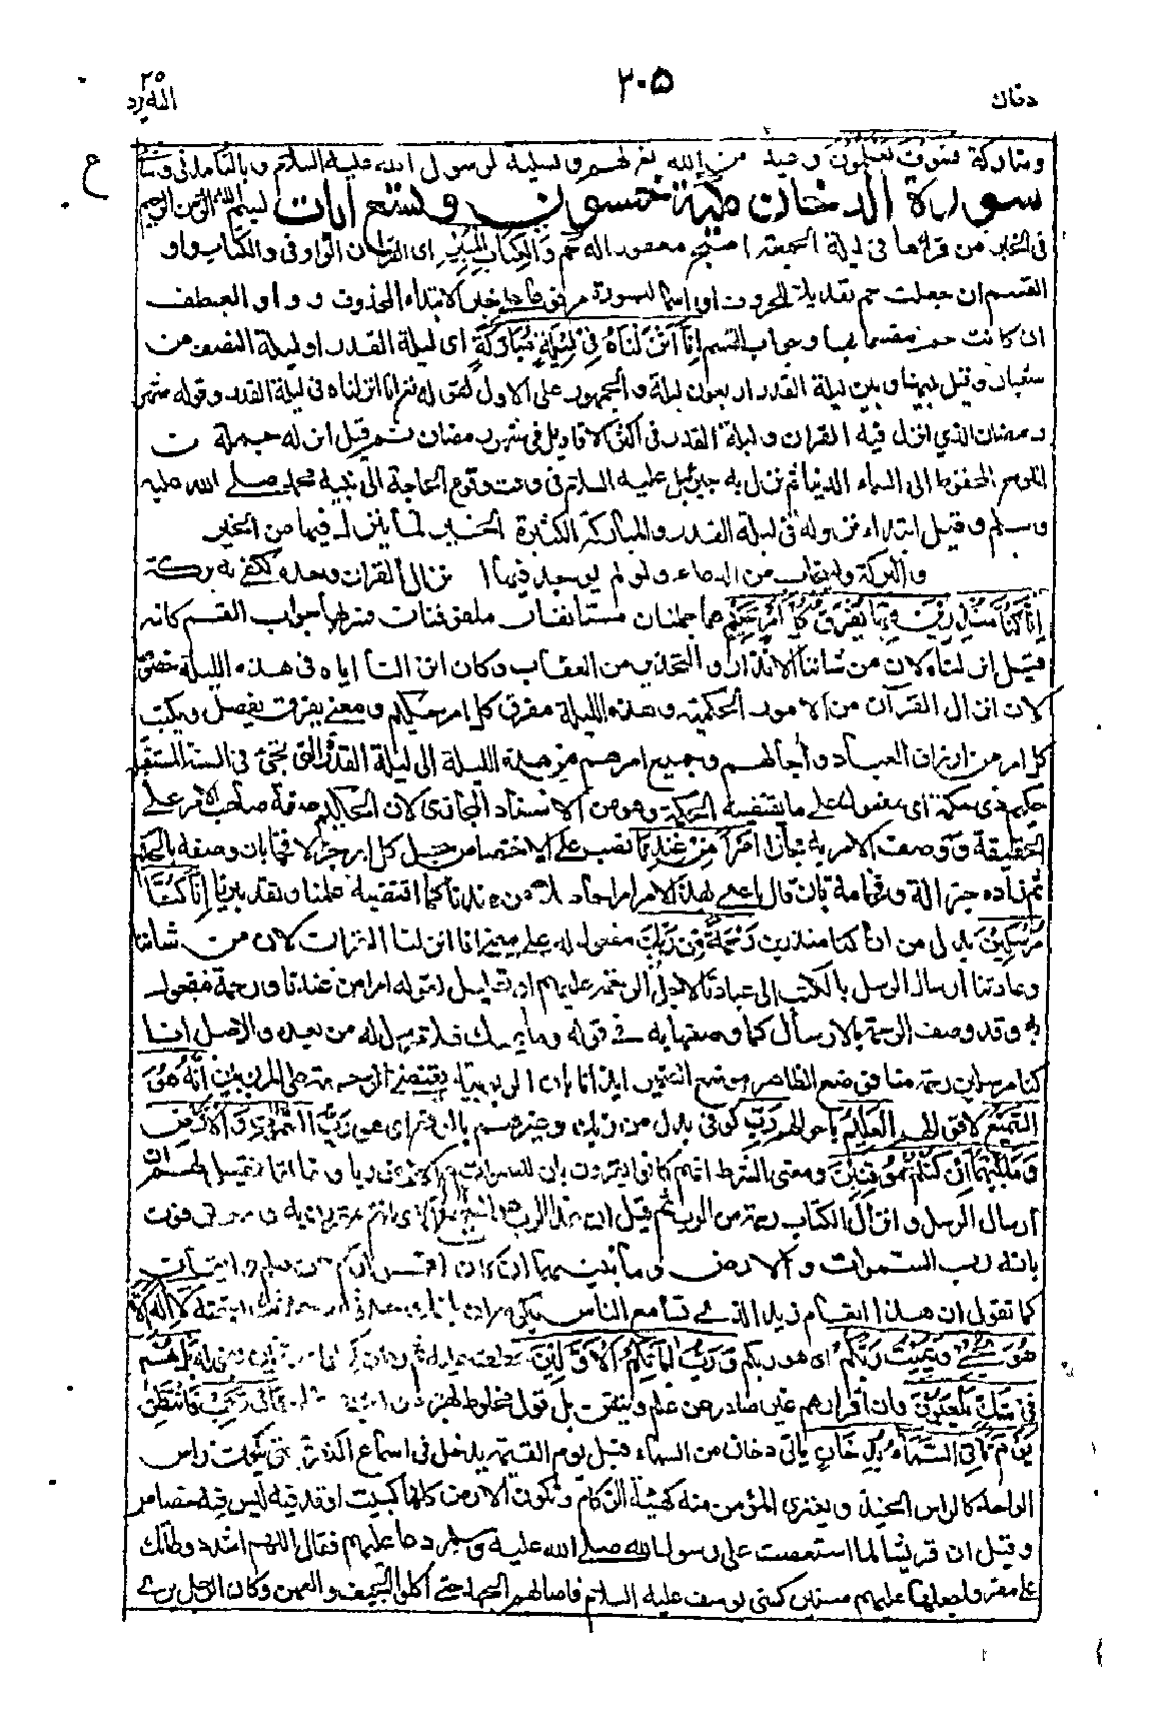 دخان
٣٠٥
٢٥
اليه يرد
ع
ومتاركة فسوف تعلمون وعيد من الله لهم وتسلية لرسول الله عليه السلام
سورة الدخان مكية خمسون وتسع ايات بسم الله الرحمن الرحيم
فى الخبر من قرأها فى ليلة الجمعة اصبح مغفورا له حم والكتاب المبين اى القران الواو فى والكتاب واو
القسم ان جعلت حم تعديدا للحروف او اسما للسورة مرفوعا على خبر الابتداء المحذوف وواو العطف
ان كانت حم مقسما بها وجواب القسم انا انزلناه فى ليلة مباركة اى ليلة القدر او ليلة النصف من
شعبان وقيل بينها وبين ليلة القدر اربعون ليلة والجمهور على الاول لقوله تع انا انزلناه فى ليلة القدر وقوله شهر
رمضان الذي انزل فيه القران وليلة القدر فى اكثر الاقاويل فى شهر رمضان ثم قيل انزله جملة من
اللوح المحفوظ الى السماء الدنيا ثم نزل به جبرئيل عليه السلام فى وقت وقوع الحاجة الى نبيه محمد صلے الله عليه
وسلم وقيل ابتداء نزوله فى ليلة القدر والمباركة الكثيرة الخير لما ينزل فيها من الخير
والبركة ويستجاب من الدعاء ولو لم يوجد فيها الا انزال القران وحده لكفے به بركة
انا كنا منذرين فيها يفرق كل امر حكيم هما جملتان مستانفتان ملفوفتان فسر بهما جواب القسم كانه
قيل انزلناه لان من شاننا الانذار والتحذير من العقاب وكان انزالنا اياه فى هذه الليلة خصوصا
لان انزال القرآن من الامور الحكمية وهذه الليلة مفرق كل امر حكيم ومعنے يفرق يفصل ويكتب
كل امر من ارزاق العباد وآجالهم وجميع امرهم من هذه الليلة الى ليلة القدر التى تجئ فى السنة المستقبلة
حكيم ذى حكمة اى مفعول على ما تقتضيه الحكمة وهو من الاسناد المجازى لان الحكيم صفة صاحب الامر على
الحقيقة ووصف الامر به مجازا امرا من عندنا نصب على الاختصاص جعل كل امر جزلا فخما بان وصفه بالحكيم
ثم زاده جزالة وفخامة بان قال اعنے بهذا الامر امرا حاصلا من عندنا كما اقتضيه علمنا وتقديرنا انا كنا
مرسلين بدل من انا كنا منذرين رحمة من ربك مفعول له على معنے انا انزلنا القران لان من شاننا
وعادتنا ارسال الرسل بالكتب الى عبادنا لاجل الرحمة عليهم او تعليل لقوله امرا من عندنا ورحمة مفعول
به وقد وصف الرحمة بالارسال كما وصفها به فے قوله وما يمسك فلا مرسل له من بعده والاصل انا
كنا مرسلين رحمة منا فوضع الظاهر موضع الضمير ايذانا بان الربوبية تقتضے الرحمة على المربوبين انه هو
السميع لاقوالهم العليم باحوالهم رب كوفى بدل من ربك وغيرهم بالرفع اى هو رب السموات والارض
وما بينهما ان كنتم موقنين ومعنى الشرط انهم كانوا يقرون بان للسموات والارض ربا وخالقا فقيل لهم ان
ارسال الرسل وانزال الكتاب رحمة من الرب ثم قيل ان هذا الرب هو السميع العليم الذى انتم مقرون به ومعترفون
بانه رب السموات والارض وما بينهما ان كان اقراركم عن علم وايقان
كما تقول ان هذا انعام زيد الذے تسامع الناس بكرمه ان بلغك حديثه وحدثت بقصته لا اله الا
هو يحيے ويميت ربكم اى هو ربكم ورب ابائكم الاولين عطف عليه ثم رد ان يكونوا موقنين بقوله بل هم
فى شك يلعبون وان اقرارهم غير صادر عن علم وتيقن بل قول مخلوط بهزء ولعب فارتقب فانتظر
يوم تاتي السماء بدخان ياتى دخان من السماء قبل يوم القيمة يدخل فى اسماع الكفرة حتى يكون راس
الواحد كالراس الحنيذ ويعترى المؤمن منه كهيئة الزكام وتكون الارض كلها كبيت اوقد فيه ليس فيه خصاص
وقيل ان قريشا لما استعصت على رسول الله صلے الله عليه وسلم دعا عليهم فقال اللهم اشدد وطأتك
على مضر واجعلها عليهم سنين كسنى يوسف عليه السلام فاصابهم الجهد حتے اكلوا الجيف والعلهز وكان الرجل يرے